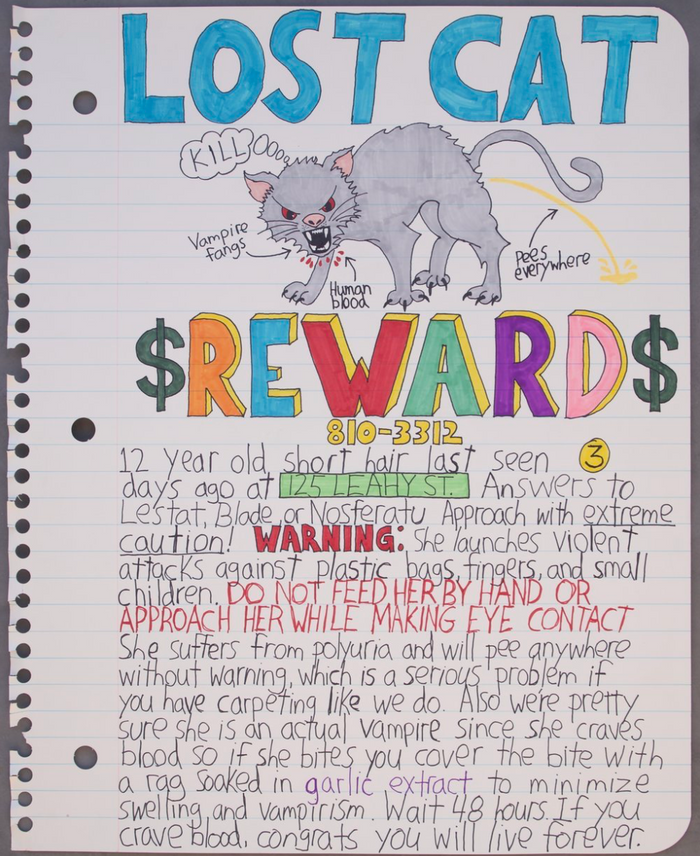 LOST CAT
KILL
Vampire
fangs
Human
blood
Pees
everywhere
$REWARD$
810-3312
12 year old short hair last seen 3
days ago at 125 LEAHY ST. Answers to
Lestat, Blade, or Nosferatu Approach with extreme
caution! WARNING: She launches violent
attacks against plastic bags, fingers, and small
children. DO NOT FEED HER BY HAND OR
APPROACH HER WHILE MAKING EYE CONTACT
She suffers from polyuria and will pee anywhere
without warning, which is a serious problem if
you have carpeting like we do. Also we're pretty
sure she is an actual vampire since she craves
blood so if she bites you cover the bite with
a rag soaked in garlic extract to minimize
swelling and vampirism. Wait 48 hours. If you
crave blood, congrats you will live forever.